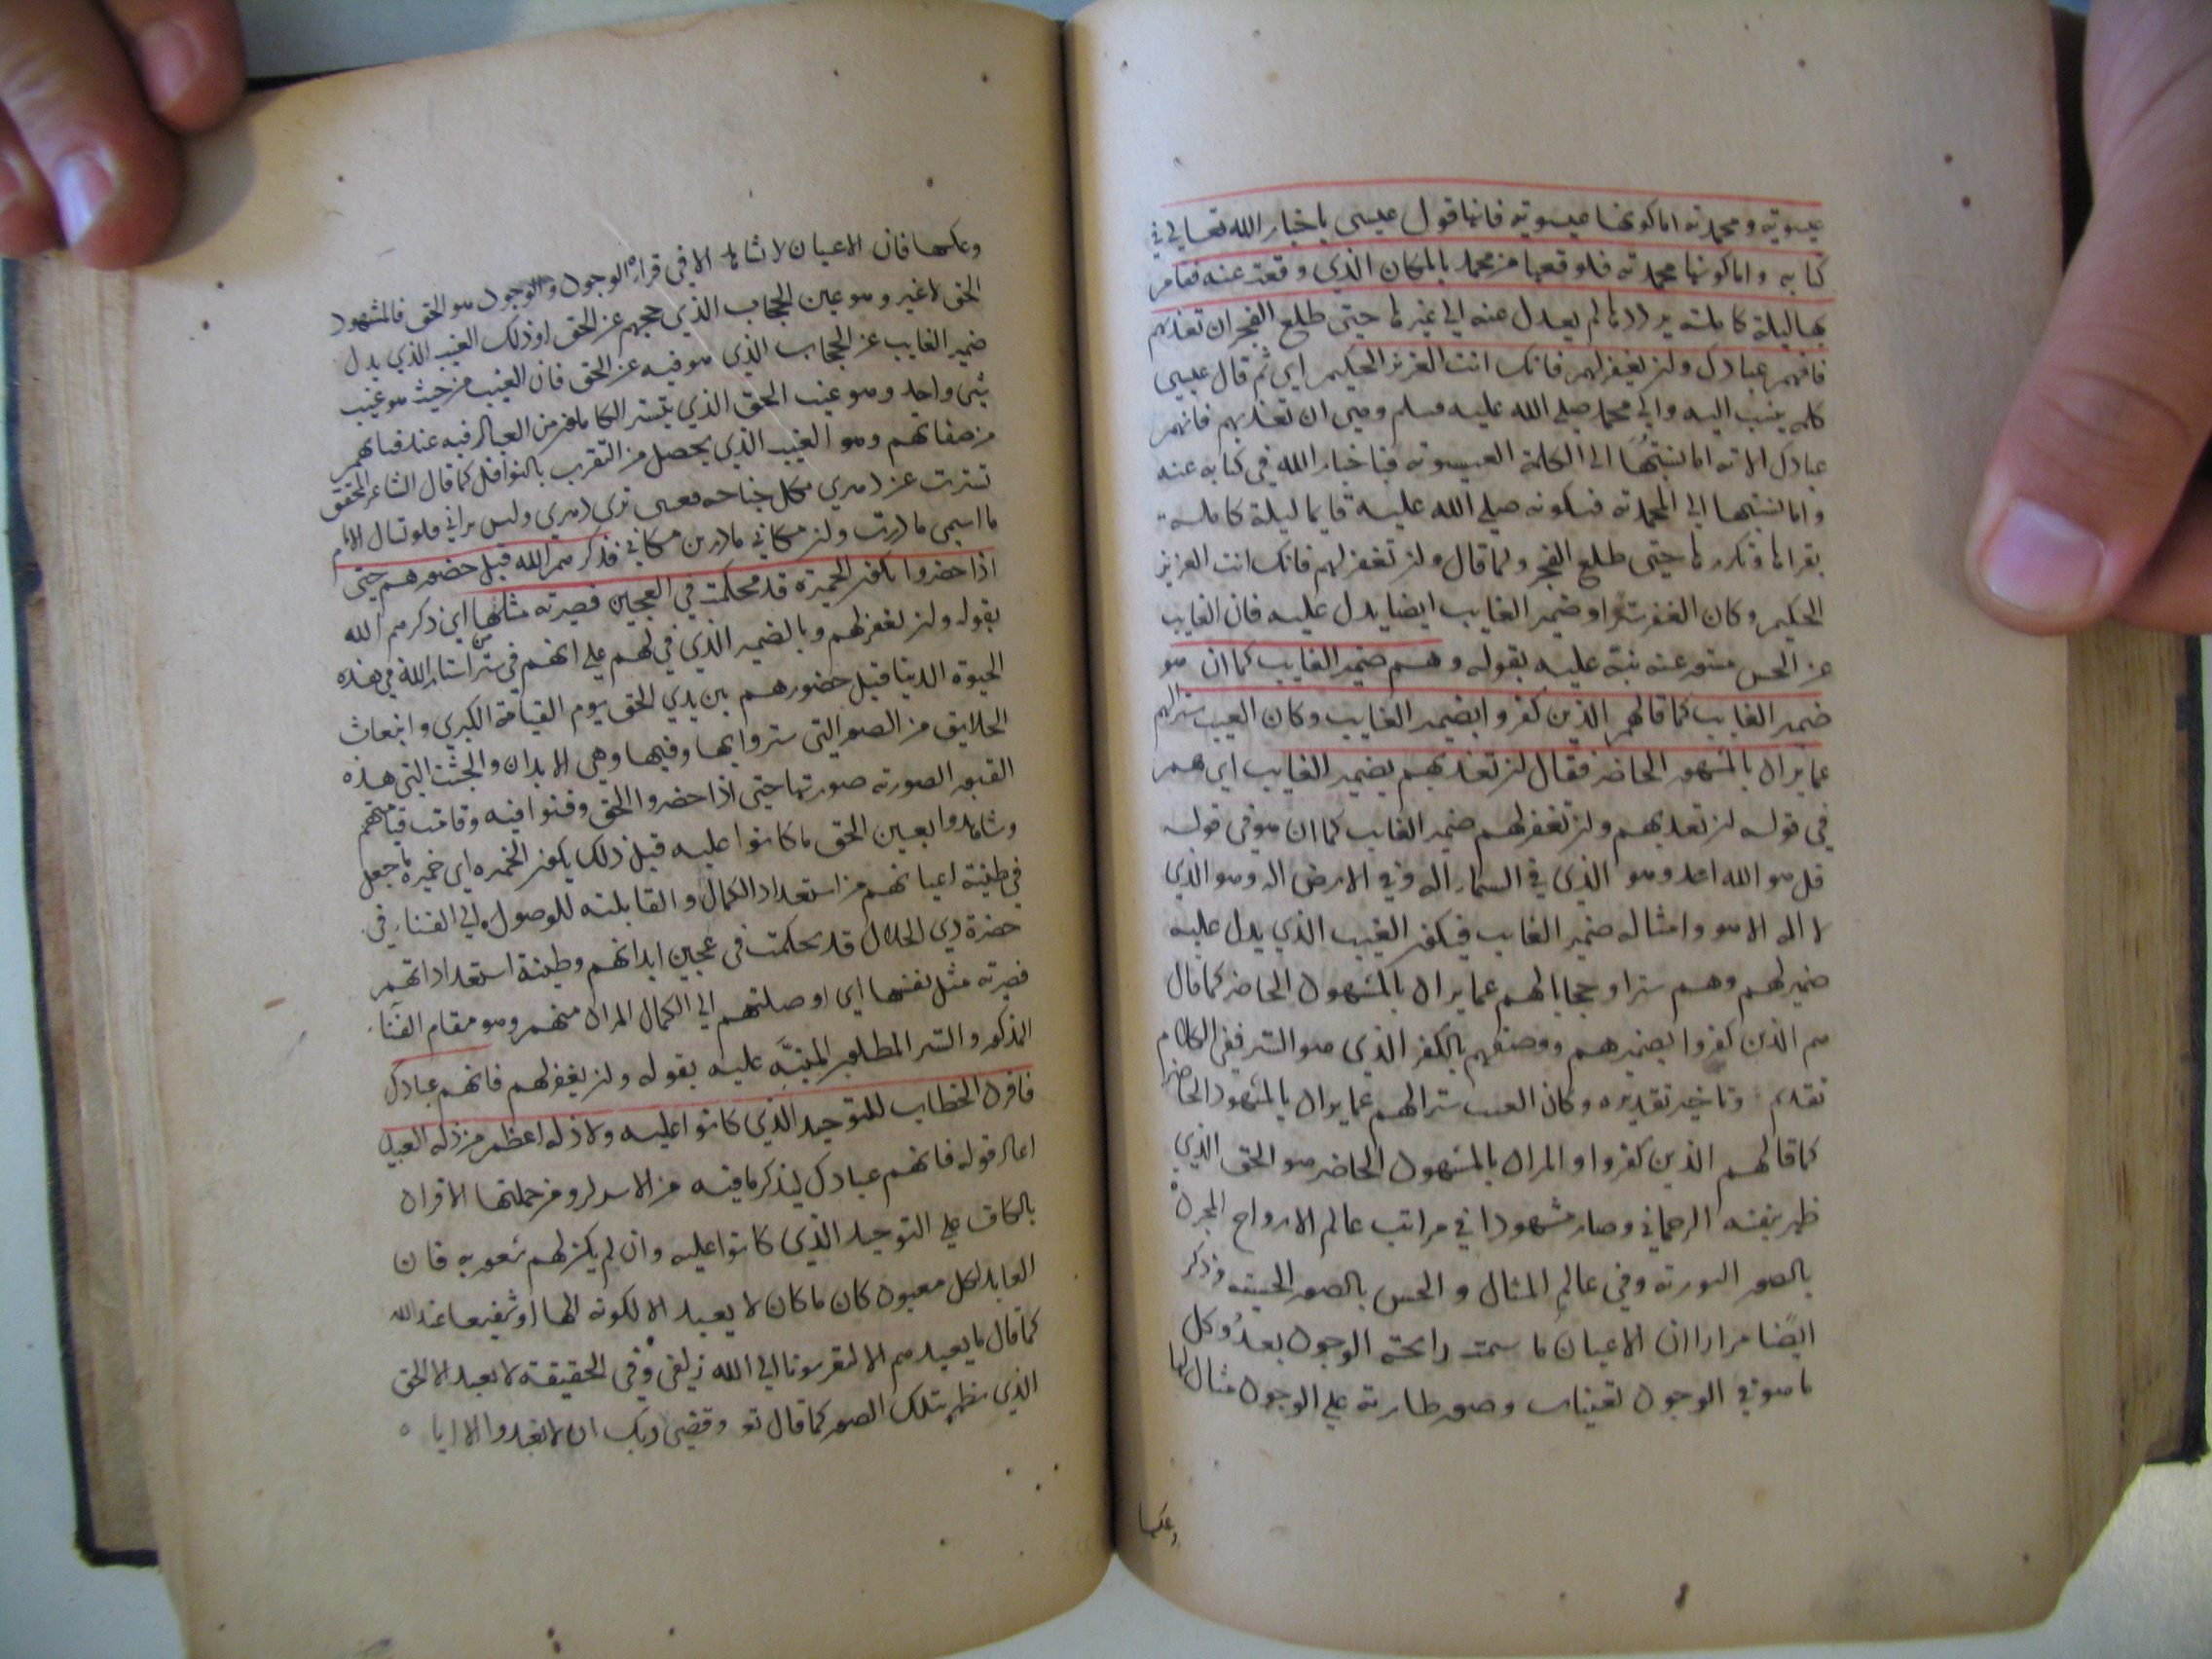 عيسوية ومحمدية اما كونها عيسوية فانها قول عيسى باخبار الله تعالى في
كتابه واما كونها محمدية فلوقوعها من محمد بالمكان الذي وقعت عنه فقام
بها ليلة كاملة يرددها لم يعدل عنه الى غيرها حتى طلع الفجر ان تعذبهم
فانهم عبادك ولن تغفر لهم فانك انت العزيز الحكيم اي ثم قال عيسى
كلمة ينسب اليه والى محمد صلى الله عليه وسلم وهي ان تعذبهم فانهم
عبادك الاية اما نسبتها الى الكلمة العيسوية فباخبار الله في كتابه عنه
واما نسبتها الى المحمدية فلكونه صلى الله عليه قايما ليلة كاملة
يقراها وتكررها حتى طلع الفجر ولما قال ولن تغفر لهم فانك انت العزيز
الحكيم وكان الغفر ستراو ضمير الغايب ايضا يدل عليه فان الغايب
عن الحس مستور عنه نبه عليه بقوله وهم ضمير الغايب كما ان هو
ضمير الغايب كما قال هم الذين كفروا بضمير الغايب وكان الغيب سترا لهم
عما يراد بالمشهود الحاضر فقال لن تعذبهم بضمير الغايب اي هم
في قوله لن تعذبهم ولن تغفر لهم ضمير الغايب كما ان هو في قوله
قل هو الله احد وهو الذي في السماء اله وفي الارض اله وهو الذي
لا اله الا هو وامثاله ضمير الغايب فيكون الغيب الذي يدل عليه
ضمير لهم وهم سترا و حجابا لهم عما يراد بالمشهود الحاضر كما قال
هم الذين كفروا بضميرهم ووصفهم بالكفر الذي هو الستر ففي الكلام
تقديم وتاخير تقديره وكان الغيب سترا لهم عما يراد بالمشهود الحاضر
كما قال هم الذين كفروا و المراد بالمشهود الحاضر هو الحق الذي
ظهر بنفسه الرحماني وصار مشهودا في مراتب عالم الارواح المجردة
بالصور النورية وفي عالم المثال و الحس بالصور الحسية وذكر
ايضا مرارا ان الاعيان ما شمت رائحة الوجود بعد وكل
ما هو في الوجود تعينات وصور طارية على الوجود مثال لها
وعكسها
وعكسها فان الاعيان لا تشاهد الا في قراة الوجود والوجود هو الحق فالمشهود
الحق لا غير وهو عين الحجاب الذي حجبهم عن الحق او ذلك الغيب الذي يدل
ضمير الغايب عن الحجاب الذي هو فيه عن الحق فان الغيب من حيث هو غيب
شئ واحد وهو غيب الحق الذي يتستر الكاملون من العباد فيه عند فنائهم
من صفاتهم وهو الغيب الذي يحصل من التقرب بالنوافل كما قال الشاعر المحقق
تسترت عن دهري بظل جناحه فعيني ترى دهري وليس يراني فلو تسال الايام
ما اسمي ما درت ولن مكاني ما درين مكاني فذكرهم الله قبل حضورهم حتى
اذا حضروا تكون الخميرة قد تحكمت في العجين فصيرته مثلها اي ذكرهم الله
بقوله ولن تغفر لهم وبالضمير الذي في لهم على انهم في ستر من استار الله في هذه
الحيوة الدنيا قبل حضورهم بين يدي الحق يوم القيامة الكبرى وانبعاث
الخلايق من الصور التي ستروا بها وفيها وهي الابدان والجثث التي هذه
القبور الصورية صورتها حتى اذا حضروا الحق وفنوا فيه وقامت قيامتهم
وشاهدوا بعين الحق ما كانوا عليه قبل ذلك يكون الخميرة اي خميرة ما جعل
في طينة اعيانهم من استعداد الكمال و القابلية للوصول الى الفناء في
حضرة ذي الجلال قد تحكمت في عجين ابدانهم وطينة استعداداتهم
فصيرته مثل نفسها اي اوصلتهم الى الكمال المراد منهم وهو مقام الفناء
المذكور والستر المطلوب المنبه عليه بقوله ولن تغفر لهم فانهم عبادك
فافرد الخطاب للتوحيد الذي كانوا عليه ولا ذلة اعظم من ذلة العبيد
اعاد قوله فانهم عبادك ليذكر ما فيه من الاسرار ومن جملتها الافراد
بالكاف على التوحيد الذي كانوا عليه وان لم يكن لهم شعور به فان
العابد لكل معبود كان ما كان لا يعبد الا لكونه الها او شفيعا عند الله
كما قال ما يعبدهم الا ليقربونا الى الله زلفى وفي الحقيقة لا يعبد الا الحق
الذي يظهر بتلك الصور كما قال تع وقضى ربك ان لا تعبدوا الا اياه